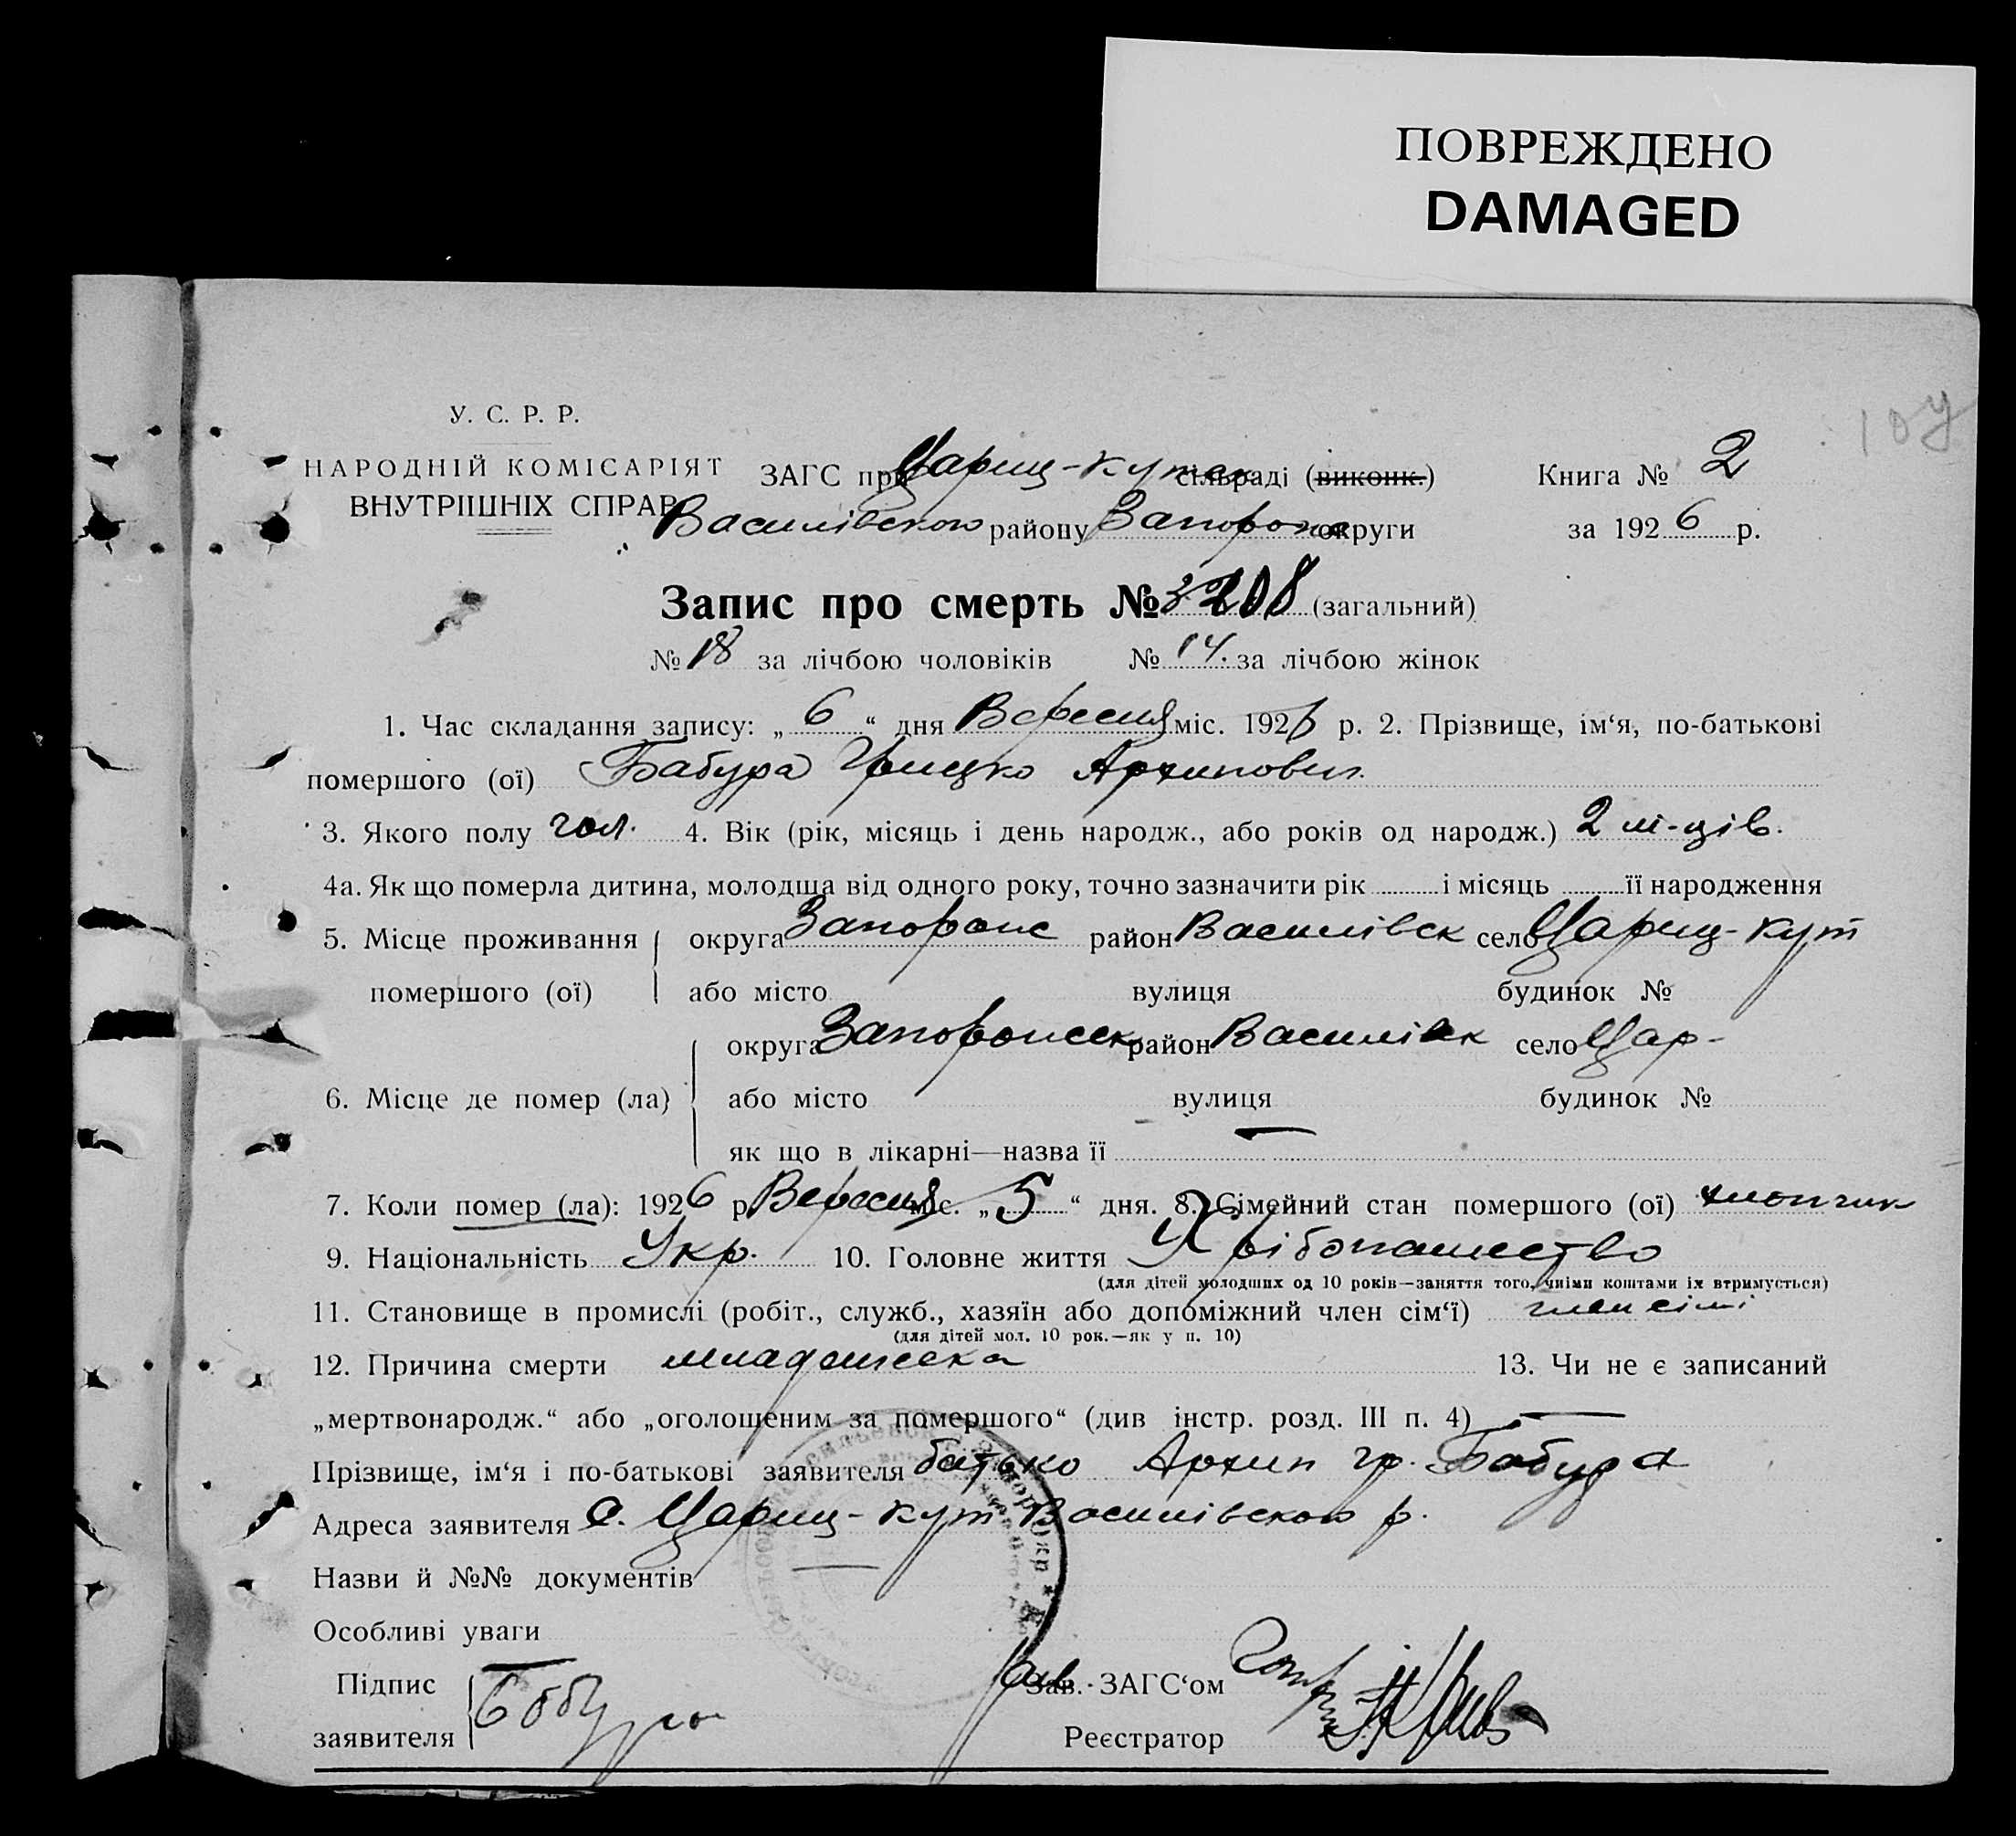 ПОВРЕЖДЕНО
DAMAGED
У. С. Р. Р.
НАРОДНІЙ КОМІСАРІЯТ
ВНУТРІШНІХ СПРАВ
ЗАГС при Цариц-Кутск сільраді (виконк.)
Книга № 2
Василівского району Запорож округи
за 1926 р.
Запис про смерть № 208 (загальний)
№ 18 за лічбою чоловіків № 14. за лічбою жінок
1. Час складання запису: „ 6 “ дня Вересня міс. 1926 р. 2. Прізвище, ім‘я, по-батькові
помершого (ої) Бабура Грицко Архипович
3. Якого полу чол. 4. Вік (рік, місяць і день народж., або років од народж.) 2 мі-ців.
4а. Як що померла дитина, молодша від одного року, точно зазначити рік і місяць її народження
5. Місце проживання помершого (ої) округа Запорож район Василівск село Цариц-Кут
або місто вулиця будинок №
6. Місце де помер (ла) округа Запорожск район Василівск село Цар-
або місто вулиця будинок №
як що в лікарні—назва її —
7. Коли помер (ла): 1926 р. Вересня міс. „ 5 “ дня. 8. Сімейний стан помершого (ої) хлопчик
9. Національність Укр. 10. Головне життя Хлібопашество
(для дітей молодших од 10 років—заняття того, чиїми коштами їх втримується)
11. Становище в промислі (робіт., служб., хазяїн або допоміжний член сім‘ї) член сімі
(для дітей мол. 10 рок.—як у п. 10)
12. Причина смерти младенческа 13. Чи не є записаний
„мертвонародж.“ або „оголошеним за помершого“ (див інстр. розд. III п. 4) —
Прізвище, ім‘я і по-батькові заявителя батько Архип гр. Бабура
Адреса заявителя с. Цариц-Кут Василівского р.
Назви й №№ документів —
Особливі уваги —
Підпис заявителя Бабура
Зав. ЗАГС‘ом
Реєстратор